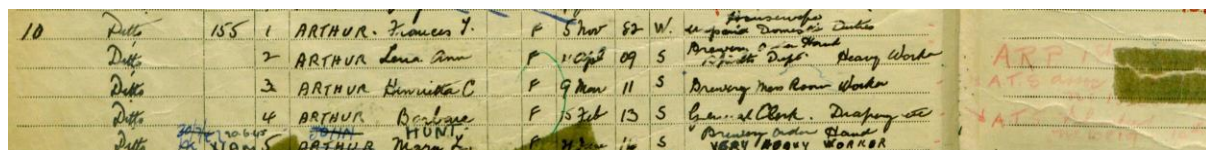 10 Ditto 155 1 ARTHUR. Frances Y. F 5 Nov 82 W. Housewife unpaid Domestic Duties
Ditto 2 ARTHUR Lena Ann F 11 Apl 09 S Brewery Dept Heavy Worker ARP
Ditto 3 ARTHUR Henrietta C F 9 Mar 11 S Brewery Mess Room Worker ATS
Ditto 4 ARTHUR Barbara F 15 Feb 13 S General Clerk. Drapery etc AT
Ditto 5 ARTHUR HUNT Mary F S Brewery Order Hand VERY HEAVY WORKER